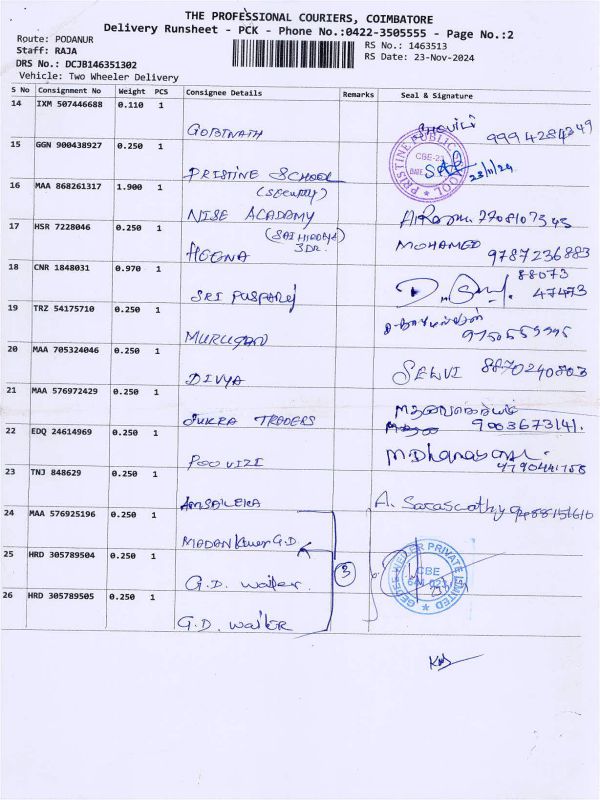 THE PROFESSIONAL COURIERS, COIMBATORE
Delivery Runsheet - PCK - Phone No.:0422-3505555 - Page No.:2
Route: PODANUR
RS No.: 1463513
Staff: RAJA
RS Date: 23-Nov-2024
DRS No.: DCJB146351302
Vehicle: Two Wheeler Delivery
S No Consignment No Weight PCS Consignee Details Remarks Seal & Signature
14 IXM 507446688 0.110 1
GOBINATH
15 GGN 900438927 0.250 1
PRISTINE SCHOOL
(Security)
PRISTINE PUBLIC SCHOOL
CBE-23
DATE
23/11/24
16 MAA 868261317 1.900 1
NISE ACADEMY
7708107343
17 HSR 7228046 0.250 1
HEENA
MOHAMED 9787236883
18 CNR 1848031 0.970 1
SRI
88073
47473
19 TRZ 54175710 0.250 1
MURUGAN
20 MAA 705324046 0.250 1
DIVYA
SELVI 8870240803
21 MAA 576972429 0.250 1
SUKRA TRADERS
9003673141.
22 EDQ 24614969 0.250 1
POOVIZI
23 TNJ 848629 0.250 1
A. Saraswathy
24 MAA 576925196 0.250 1
MADAN Kumar G.D.
25 HRD 305789504 0.250 1
G.D. Weiler
3
GEDEE WEILER PRIVATE LIMITED
CBE
26 HRD 305789505 0.250 1
G.D. Weiler